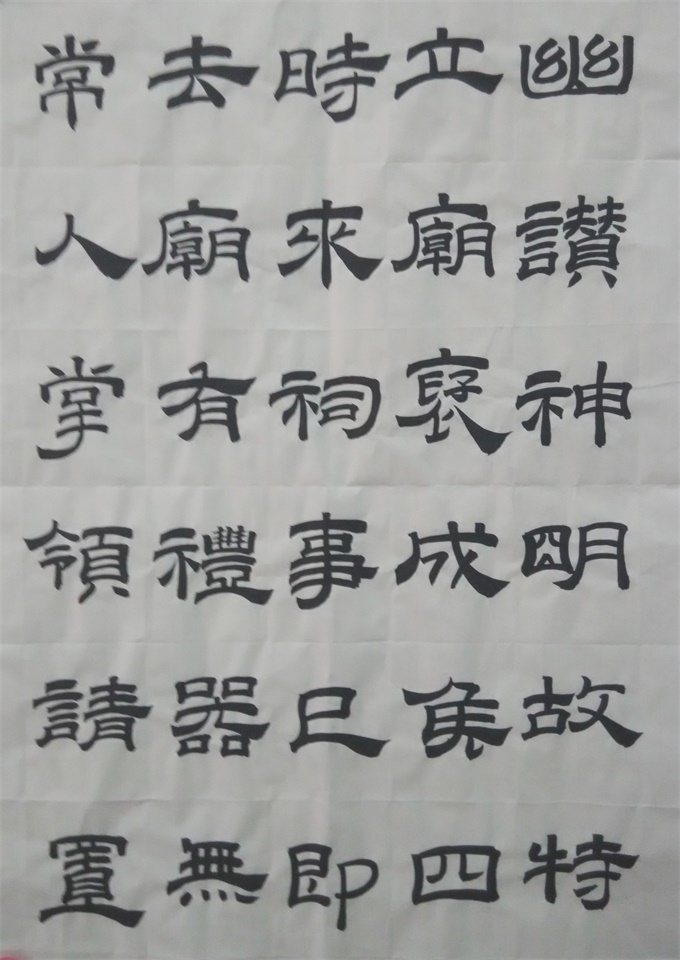 幽讃神明故特
立廟褒成侯四
時來祠事已即
去廟有禮器無
常人掌領請置